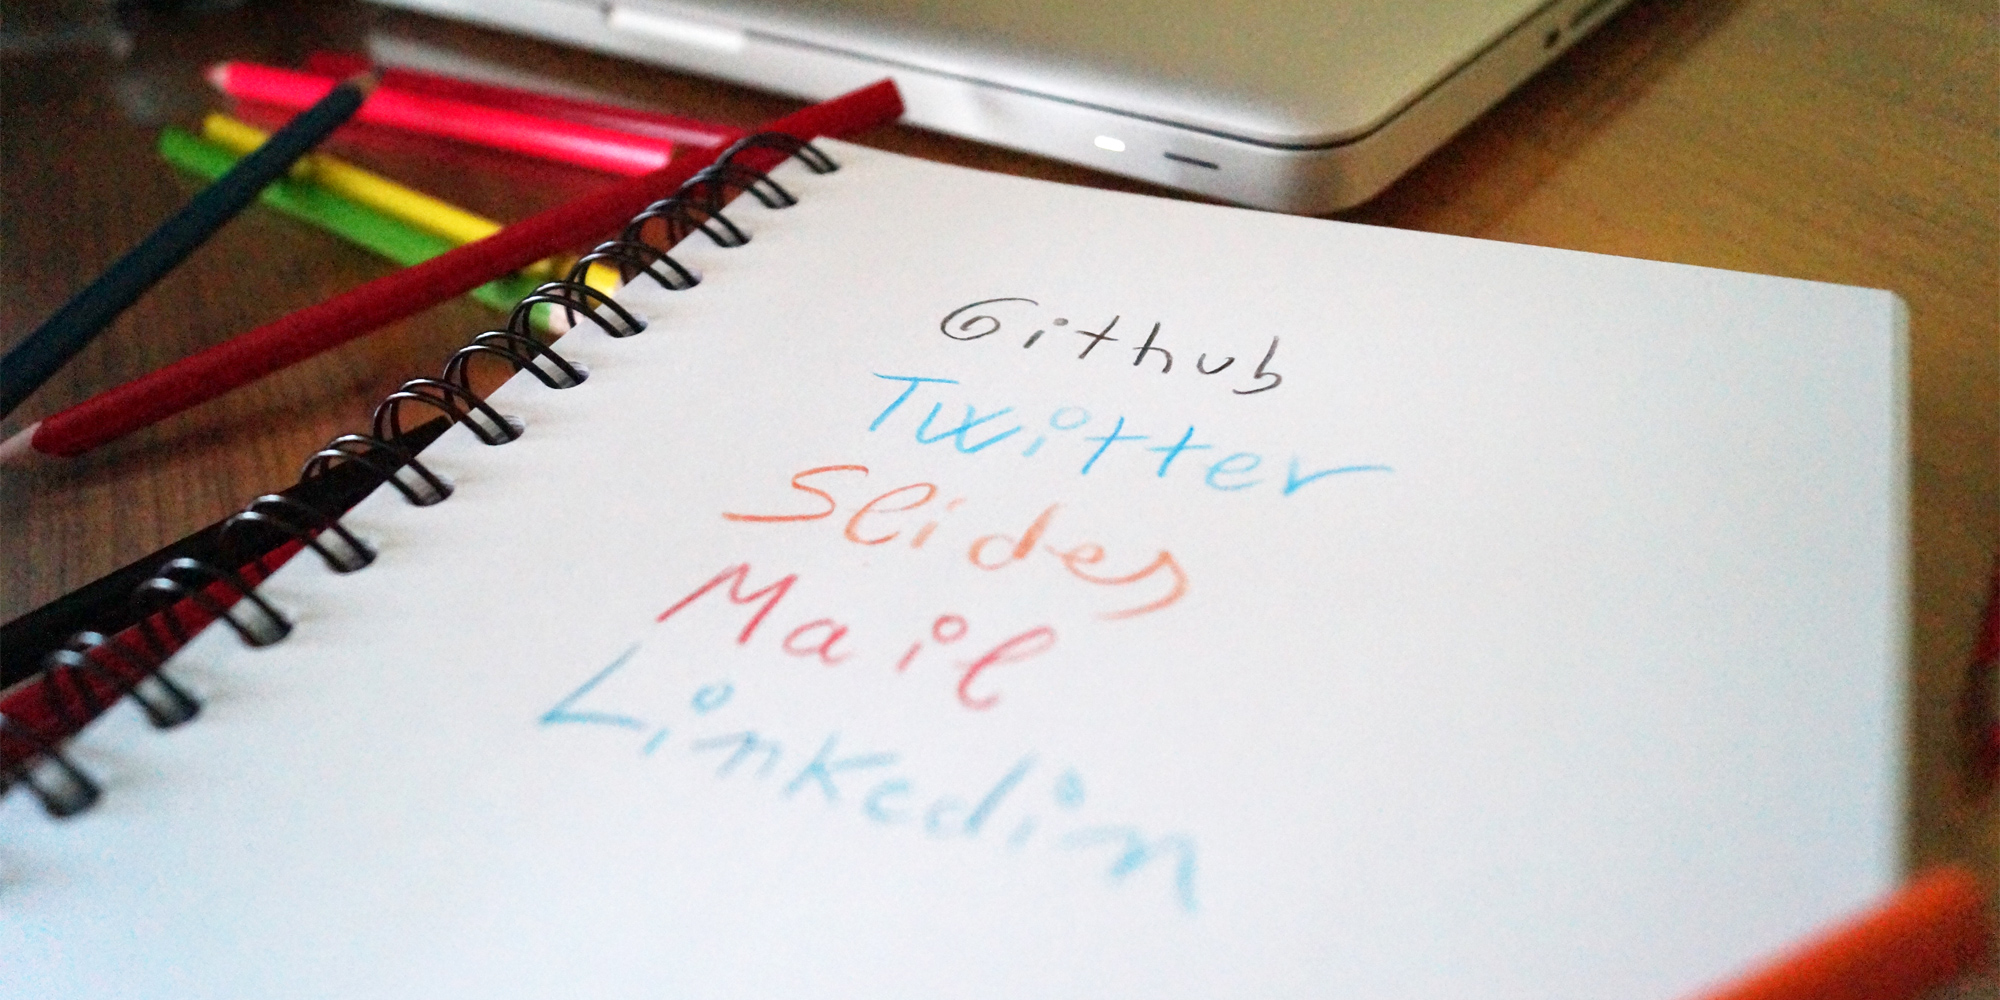 Github
Twitter
Slides
Mail
Linkedin